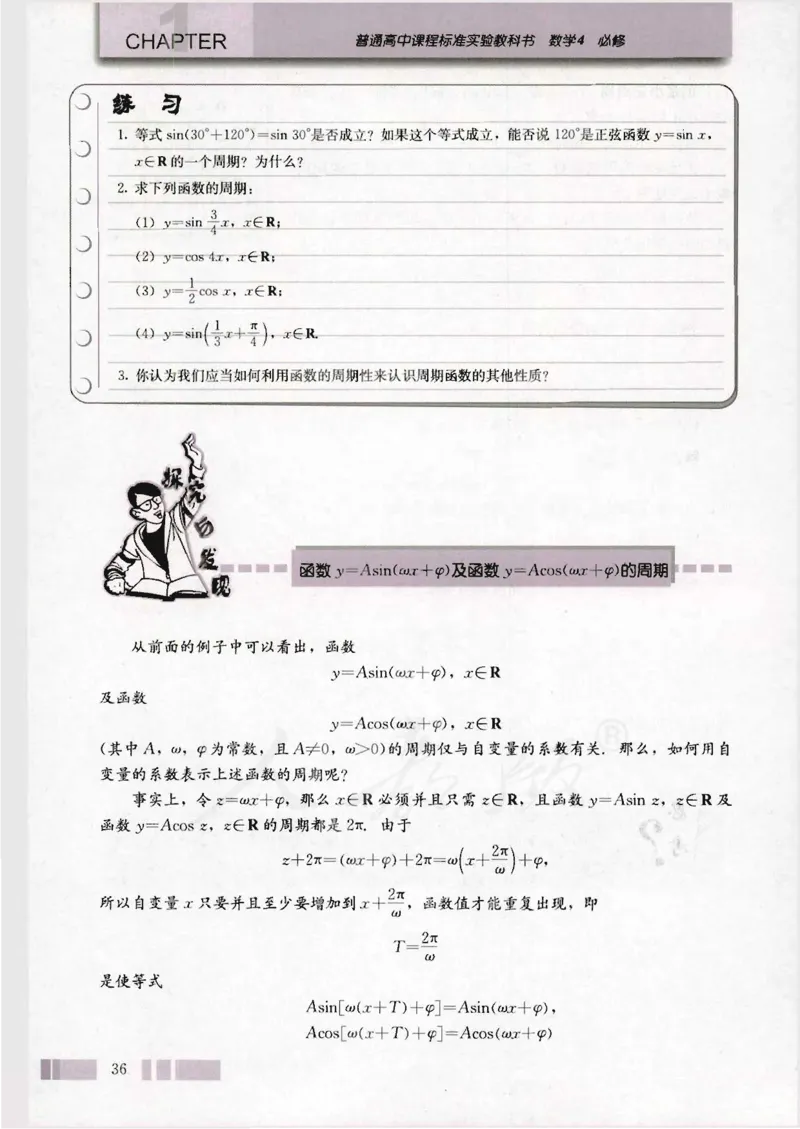 1
CHAPTER
普通高中课程标准实验教科书 数学4 必修
练 习
1. 等式 sin(30°+120°)=sin 30°是否成立？如果这个等式成立，能否说 120°是正弦函数 y=sin x，
x∈R 的一个周期？为什么？
2. 求下列函数的周期：
(1) y=sin 3/4 x，x∈R；
(2) y=cos 4x，x∈R；
(3) y=1/2 cos x，x∈R；
(4) y=sin(1/3 x+π/4)，x∈R.
3. 你认为我们应当如何利用函数的周期性来认识周期函数的其他性质？
探究与发现
函数 y=Asin(ωx+φ)及函数 y=Acos(ωx+φ)的周期
从前面的例子中可以看出，函数
y=Asin(ωx+φ)，x∈R
及函数
y=Acos(ωx+φ)，x∈R
(其中 A，ω，φ为常数，且 A≠0，ω>0)的周期仅与自变量的系数有关．那么，如何用自
变量的系数表示上述函数的周期呢？
事实上，令 z=ωx+φ，那么 x∈R 必须并且只需 z∈R，且函数 y=Asin z，z∈R 及
函数 y=Acos z，z∈R 的周期都是 2π．由于
z+2π=(ωx+φ)+2π=ω(x+2π/ω)+φ，
所以自变量 x 只要并且至少要增加到 x+2π/ω，函数值才能重复出现，即
T=2π/ω
是使等式
Asin[ω(x+T)+φ]=Asin(ωx+φ)，
Acos[ω(x+T)+φ]=Acos(ωx+φ)
36